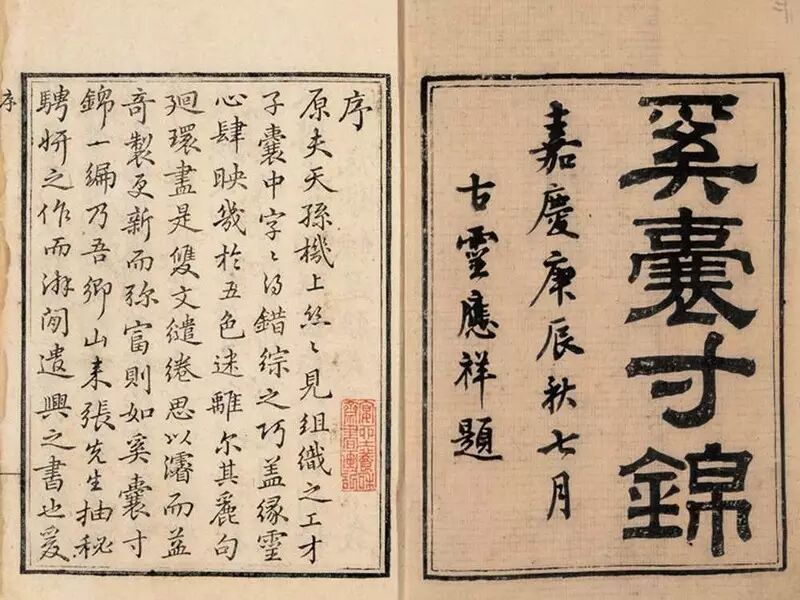 奚囊寸錦
嘉慶庚辰秋七月
古雲應祥題
序
原夫天孫機上絲〻見組織之工才
子囊中字〻得錯綜之巧蓋緣靈
心肆映幾於五色迷離尔其麗句
廻環盡是雙文繾綣思以濬而益
奇製更新而弥富則如奚囊寸
錦一編乃吾鄉山来張先生抽秘
騁妍之作而游閒遣興之書也爰
序